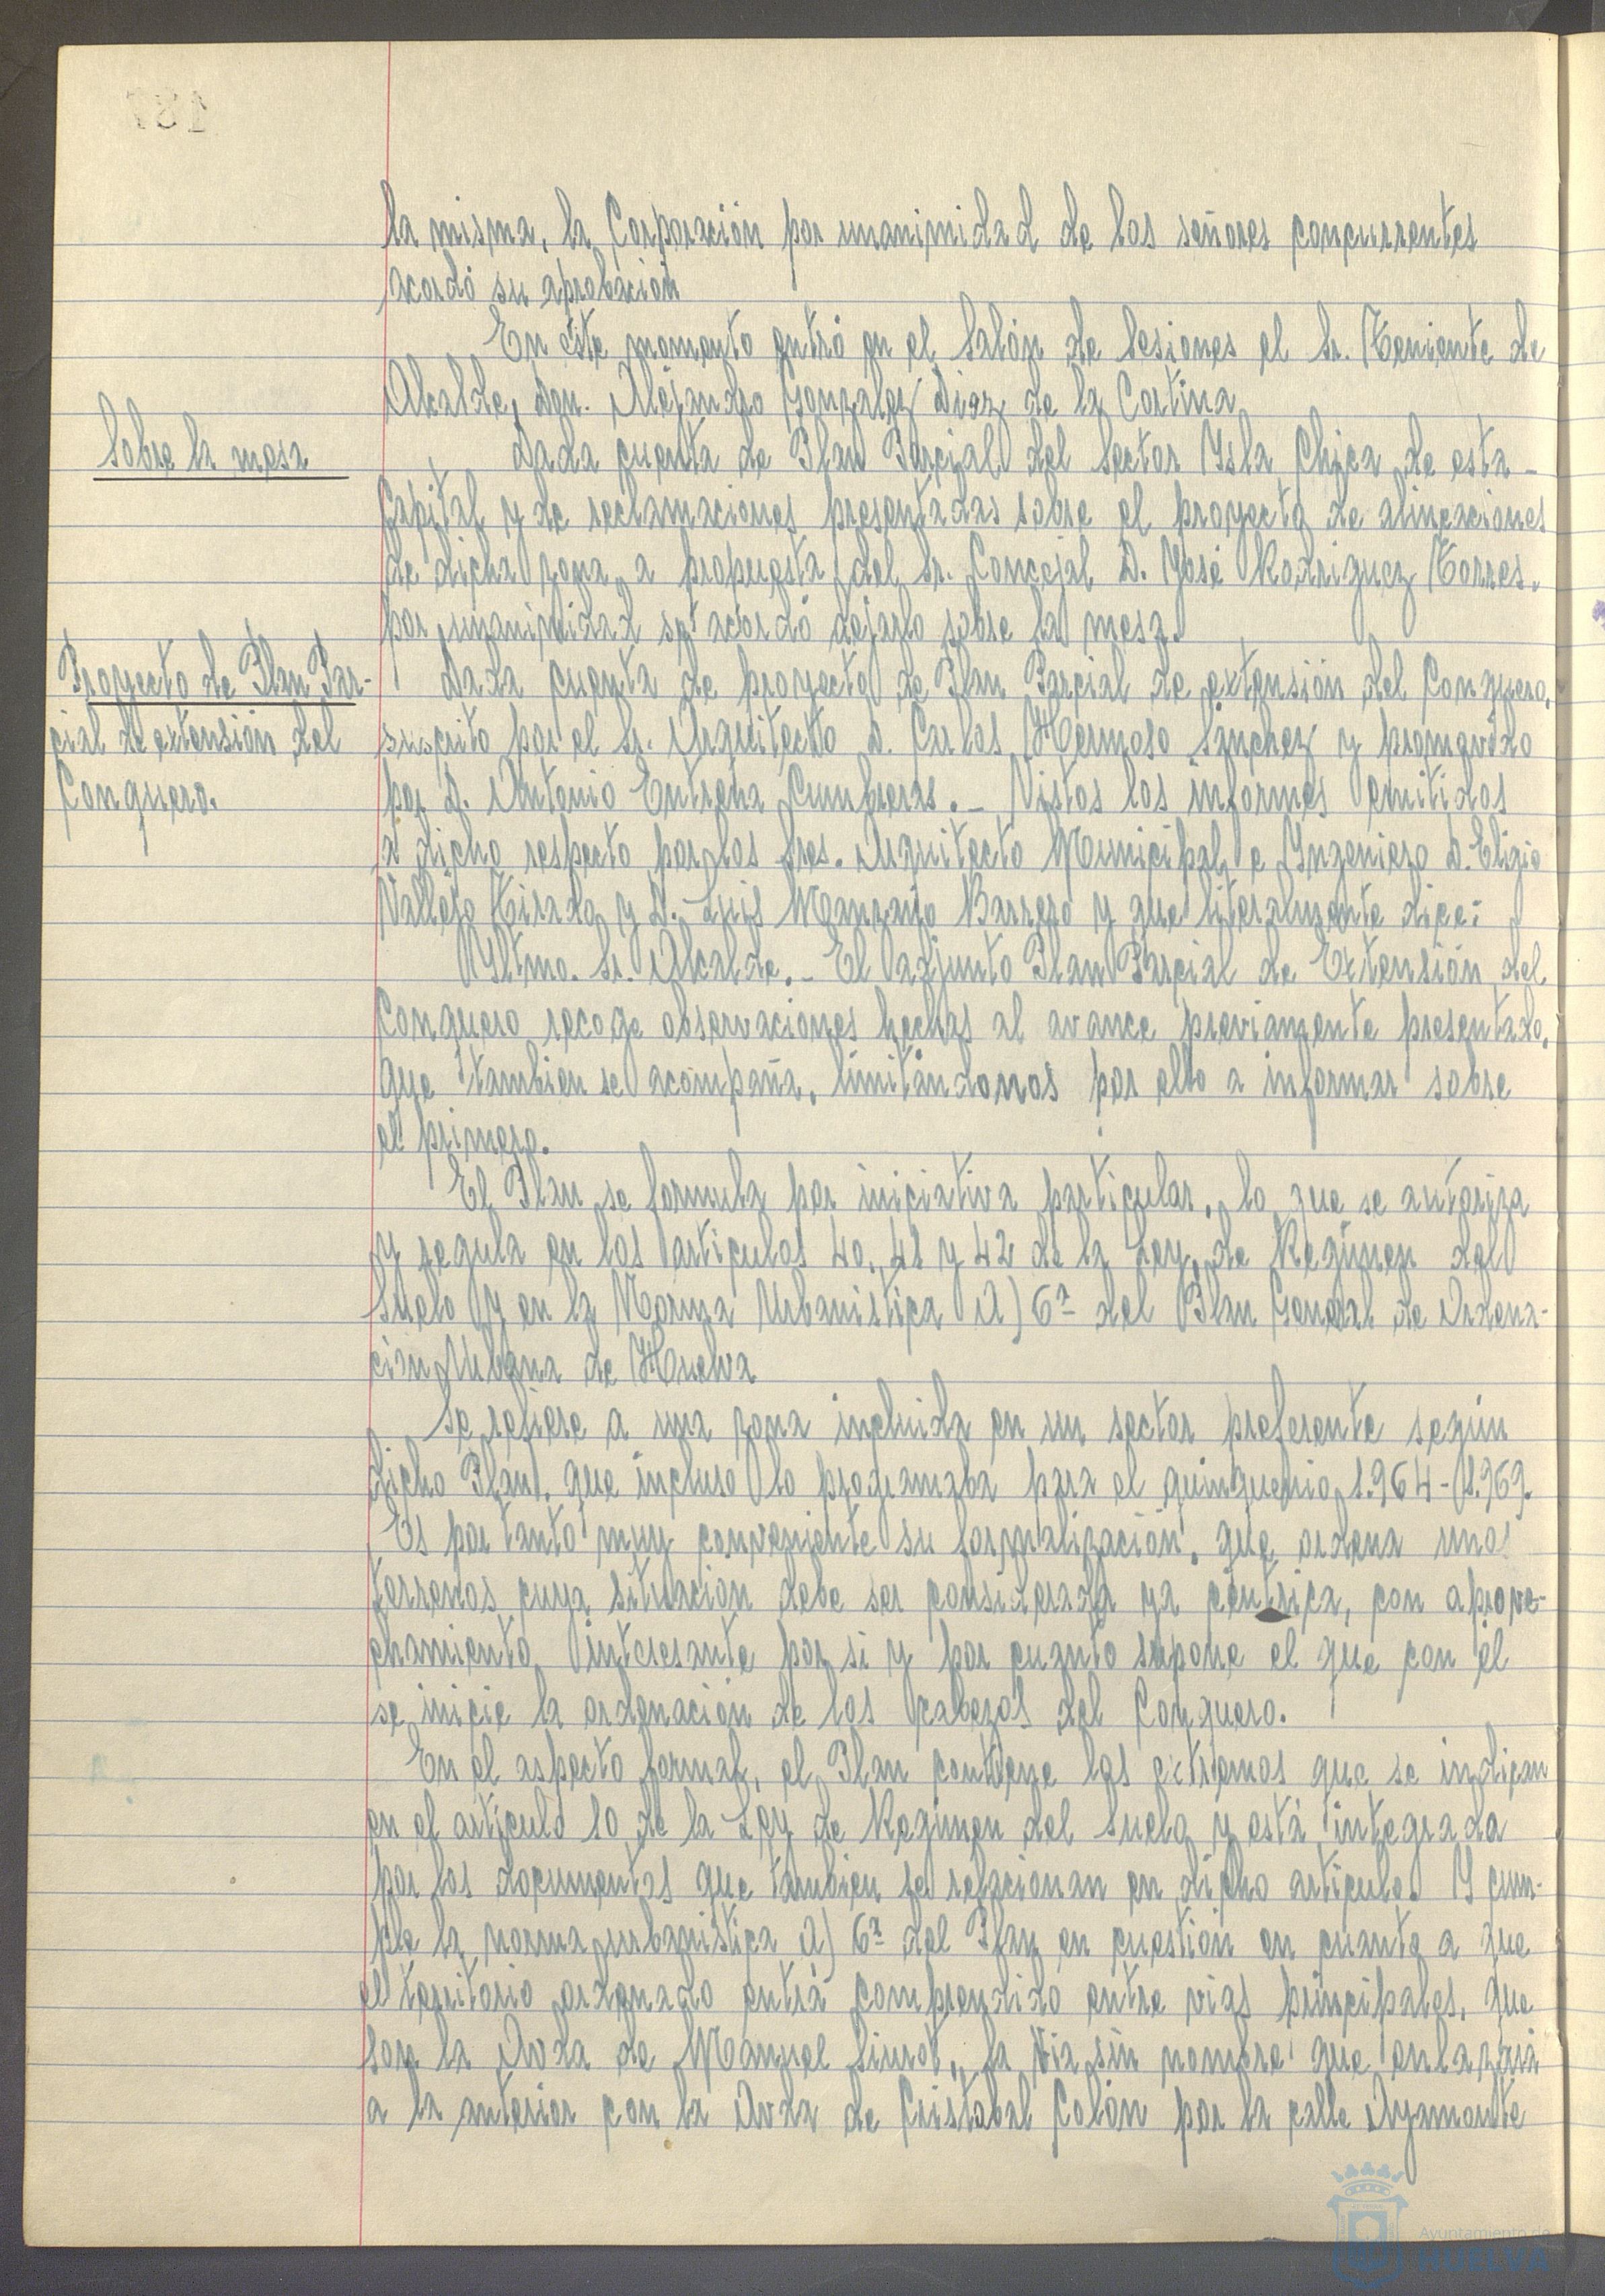 la misma, la Corporación por unanimidad de los señores concurrentes
acordó su aprobación
En éste momento entró en el Salón de Sesiones el Sr. Teniente de
Alcalde, Don. Alejandro Gonzalez Diaz de la Cortina
Sobre la mesa
Dada cuenta de Plan Parcial del Sector Ysla Chica de esta
Capital y de reclamaciones presentadas sobre el proyecto de alineaciones
de dicha zona, a propuesta del Sr. Concejal D. José Rodriguez Torres.
por unanimidad se acordó dejarlo sobre la mesa.
Proyecto de Plan Par-
cial de extensión del
Conquero.
Dada cuenta de proyecto de Plan Parcial de extensión del Conquero,
suscrito por el Sr. Arquitecto D. Carlos Hermoso Sanchez y promovido
por D. Antonio Entrena Cumbreras.- Vistos los informes emitidos
a dicho respecto por los Sres. Arquitecto Municipal e Yngeniero D. Eligio
Vallejo Tirado y D. Luis Manzano Barrero y que literalmente dice:
Yltmo. Sr. Alcalde.- El adjunto Plan Parcial de Extensión del
Conquero recoge observaciones hechas al avance previamente presentado,
que tambien se acompaña, limitándonos por ello a informar sobre
el primero.
El Plan se formula por iniciativa particular, lo que se autoriza
y regula en los articulos 40, 41 y 42 de la Ley de Regimen del
Suelo y en la Norma Urbanistica A) 6ª del Plan General de Ordena-
cion Urbana de Huelva
Se refiere a una zona incluida en un sector preferente según
dicho Plan, que incluso lo programaba para el quinquenio 1.964-1.969.
Es por tanto muy conveniente su formalización, que ordena unos
terrenos cuya situación debe ser considerada ya céntrica, con aprove-
chamiento interesante por si y por cuanto supone el que con él
se inicie la ordenación de los cabezos del Conquero.
En el aspecto formal, el Plan contiene los extremos que se indican
en el articulo 10 de la Ley de Regimen del Suelo y está integrado
por los documentos que tambien se relacionan en dicho articulo. Y cum-
ple la norma urbanistica A) 6ª del Plan en cuestión en cuanto a que
el territorio ordenado entrá comprendido entre vias principales, que
son la Avda de Manuel Siurot, la via sin nombre que enlazará
a la anterior con la Avda de Cristobal Colón por la calle Ayamonte
Ayuntamiento de
HUELVA